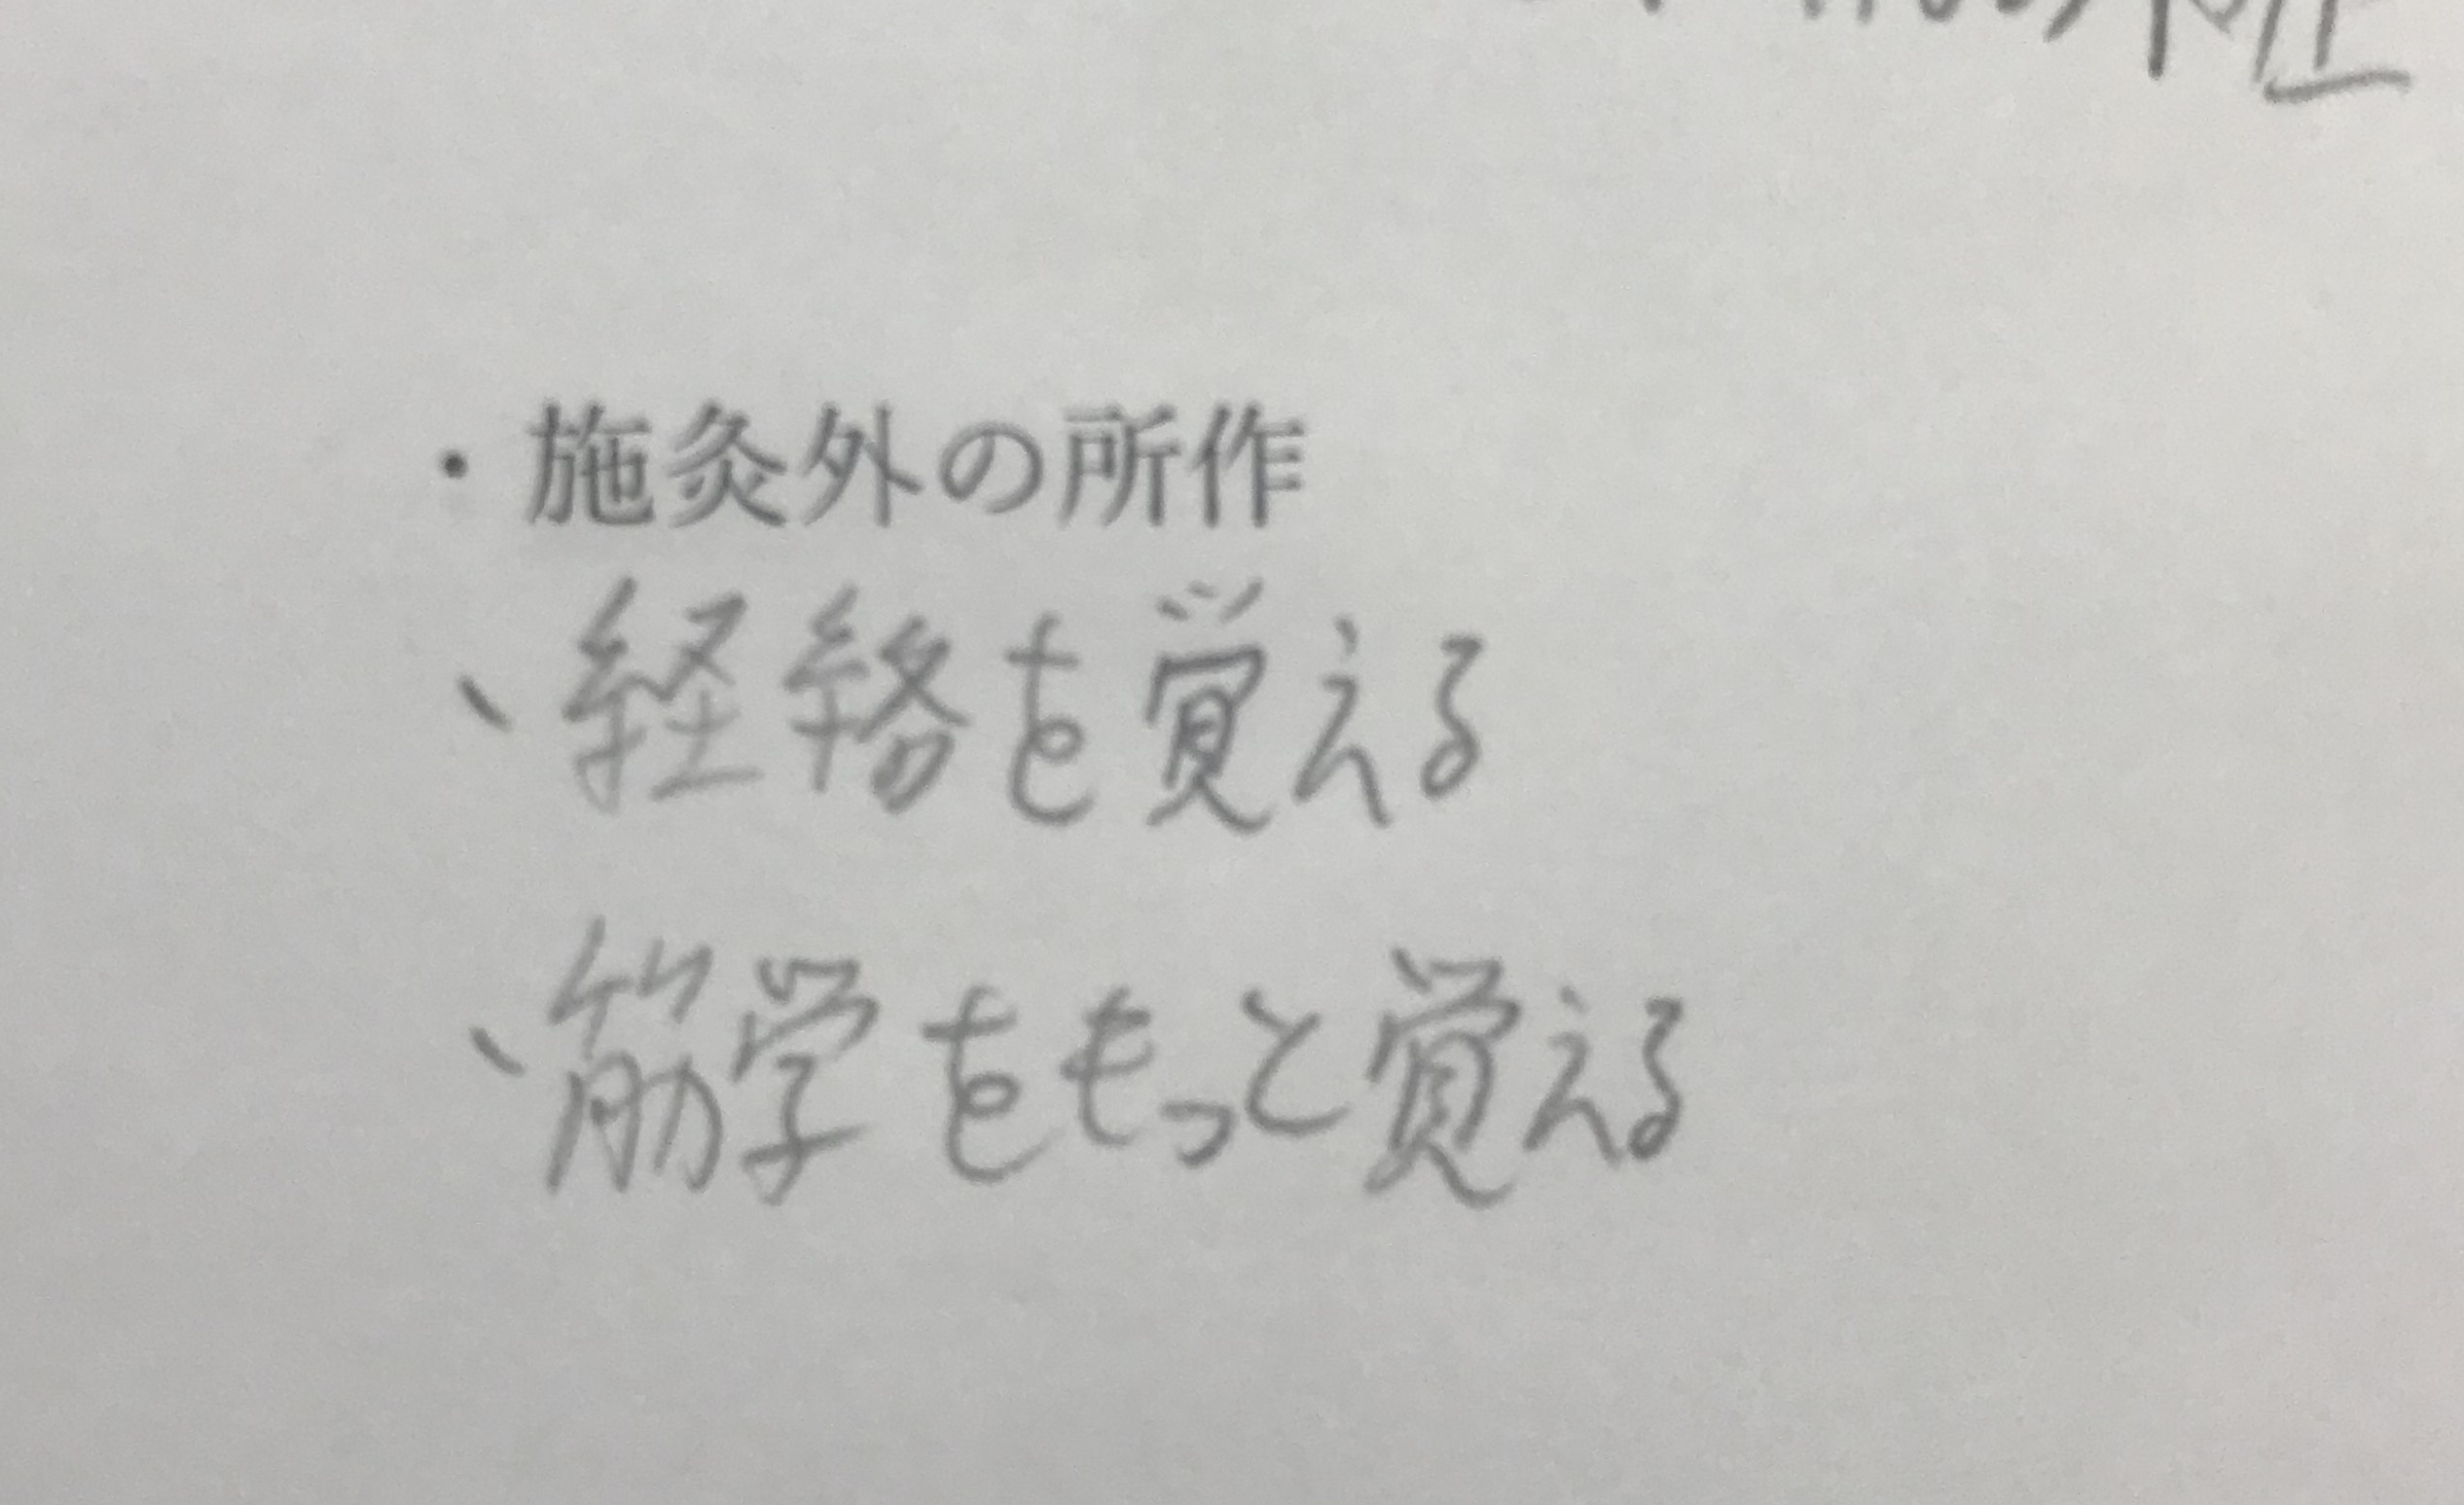 ・施灸外の所作
、経絡を覚える
、筋学をもっと覚える